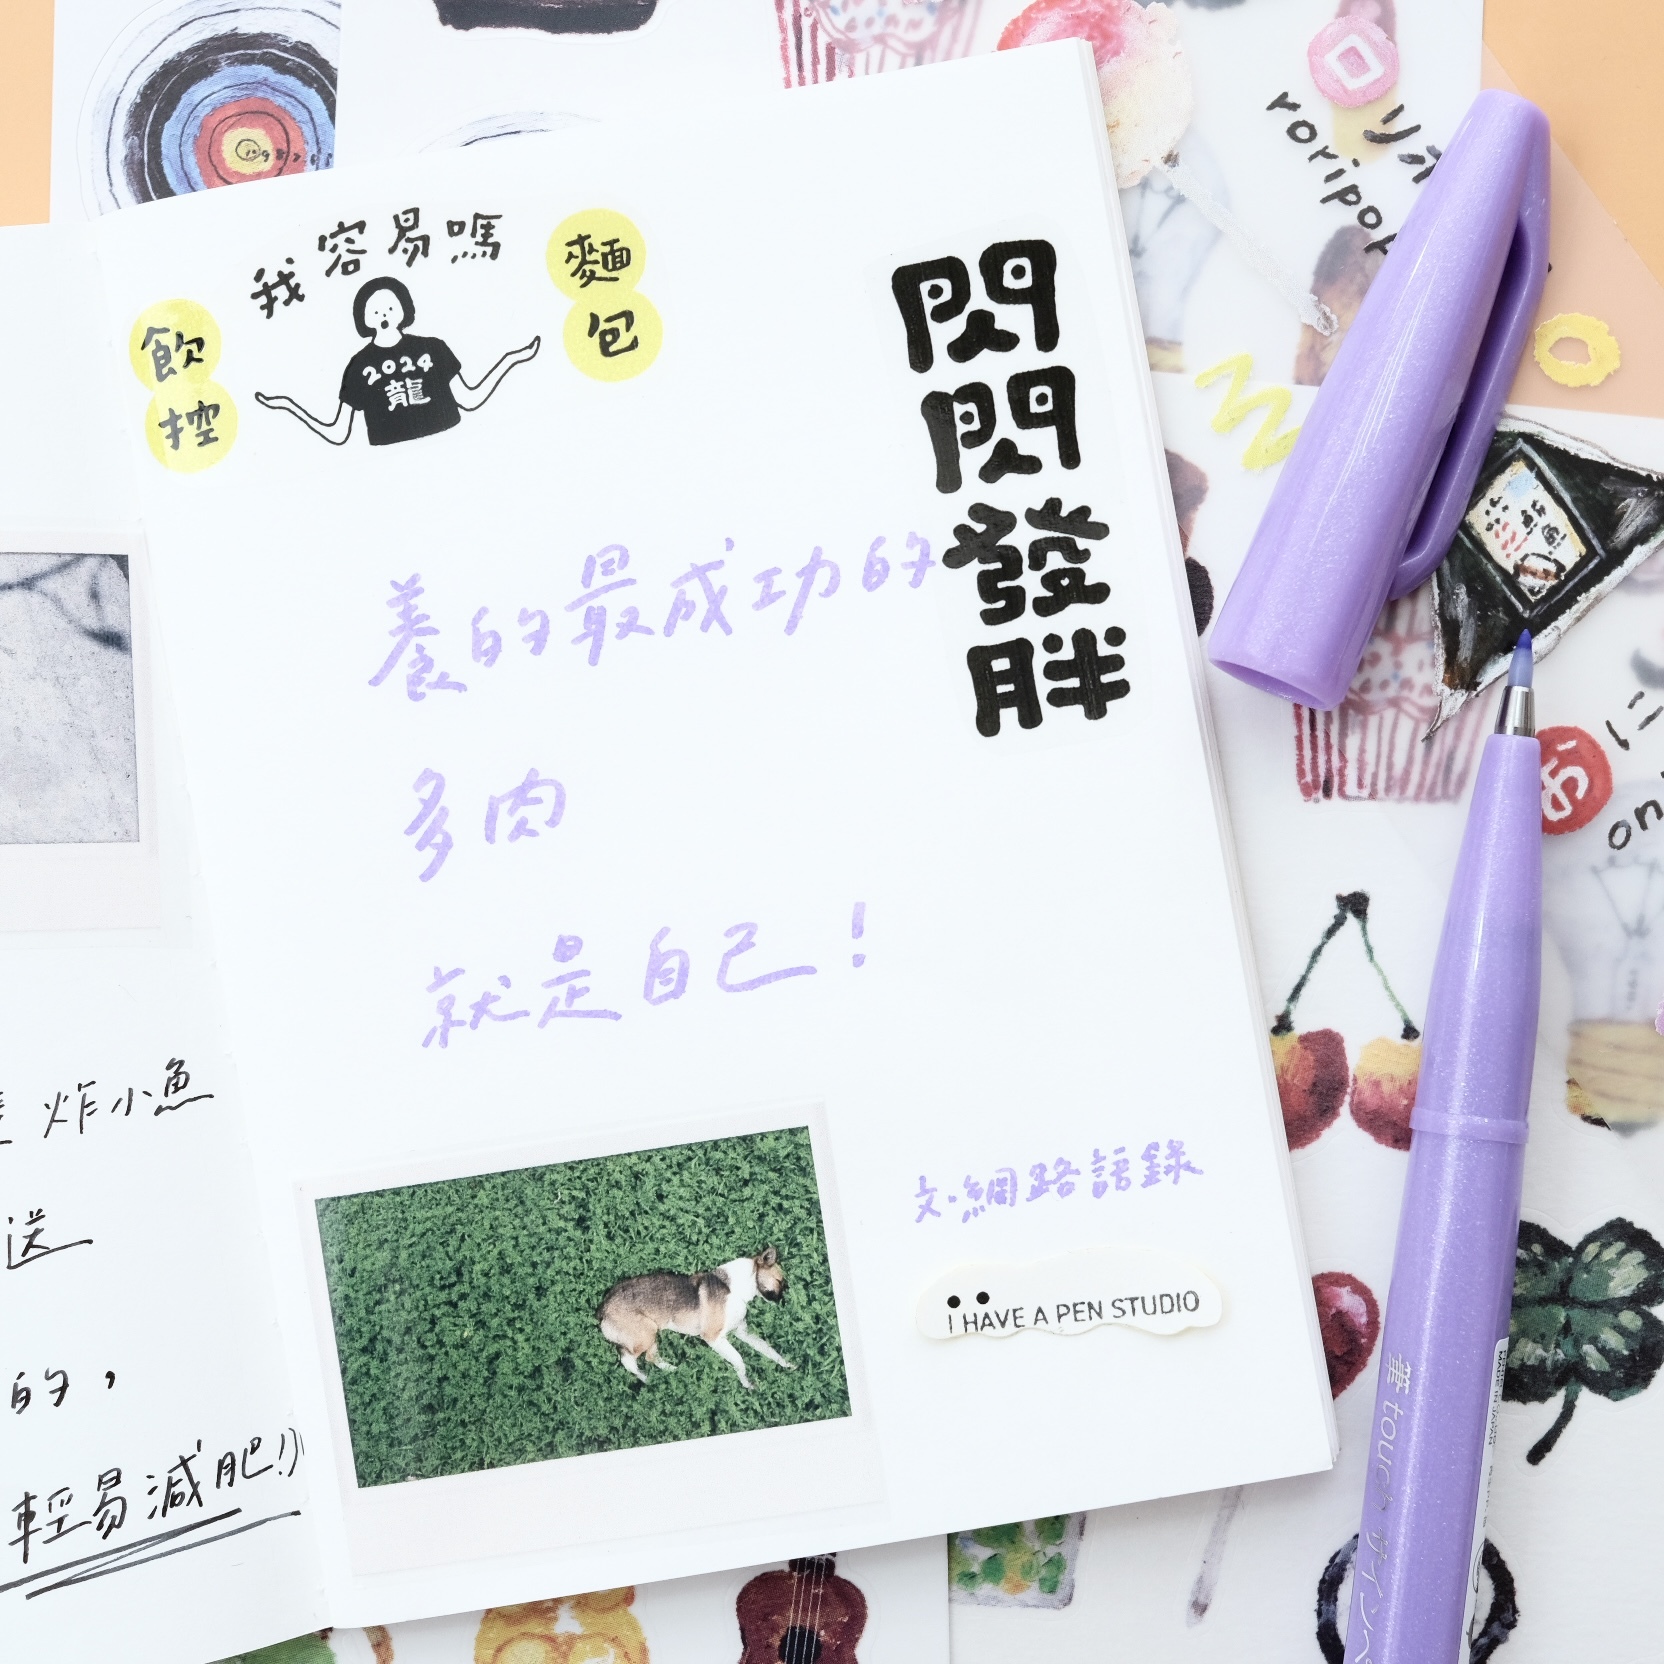 我容易嗎
飲控
麵包
2024
龍
閃閃發胖
養的最成功的
多肉
就是自己!
文.網路語錄
I HAVE A PEN STUDIO
炸小魚
送
的,
輕易減肥!!
roripop
お
に
on
筆touchサインペ
MADE IN JAPAN